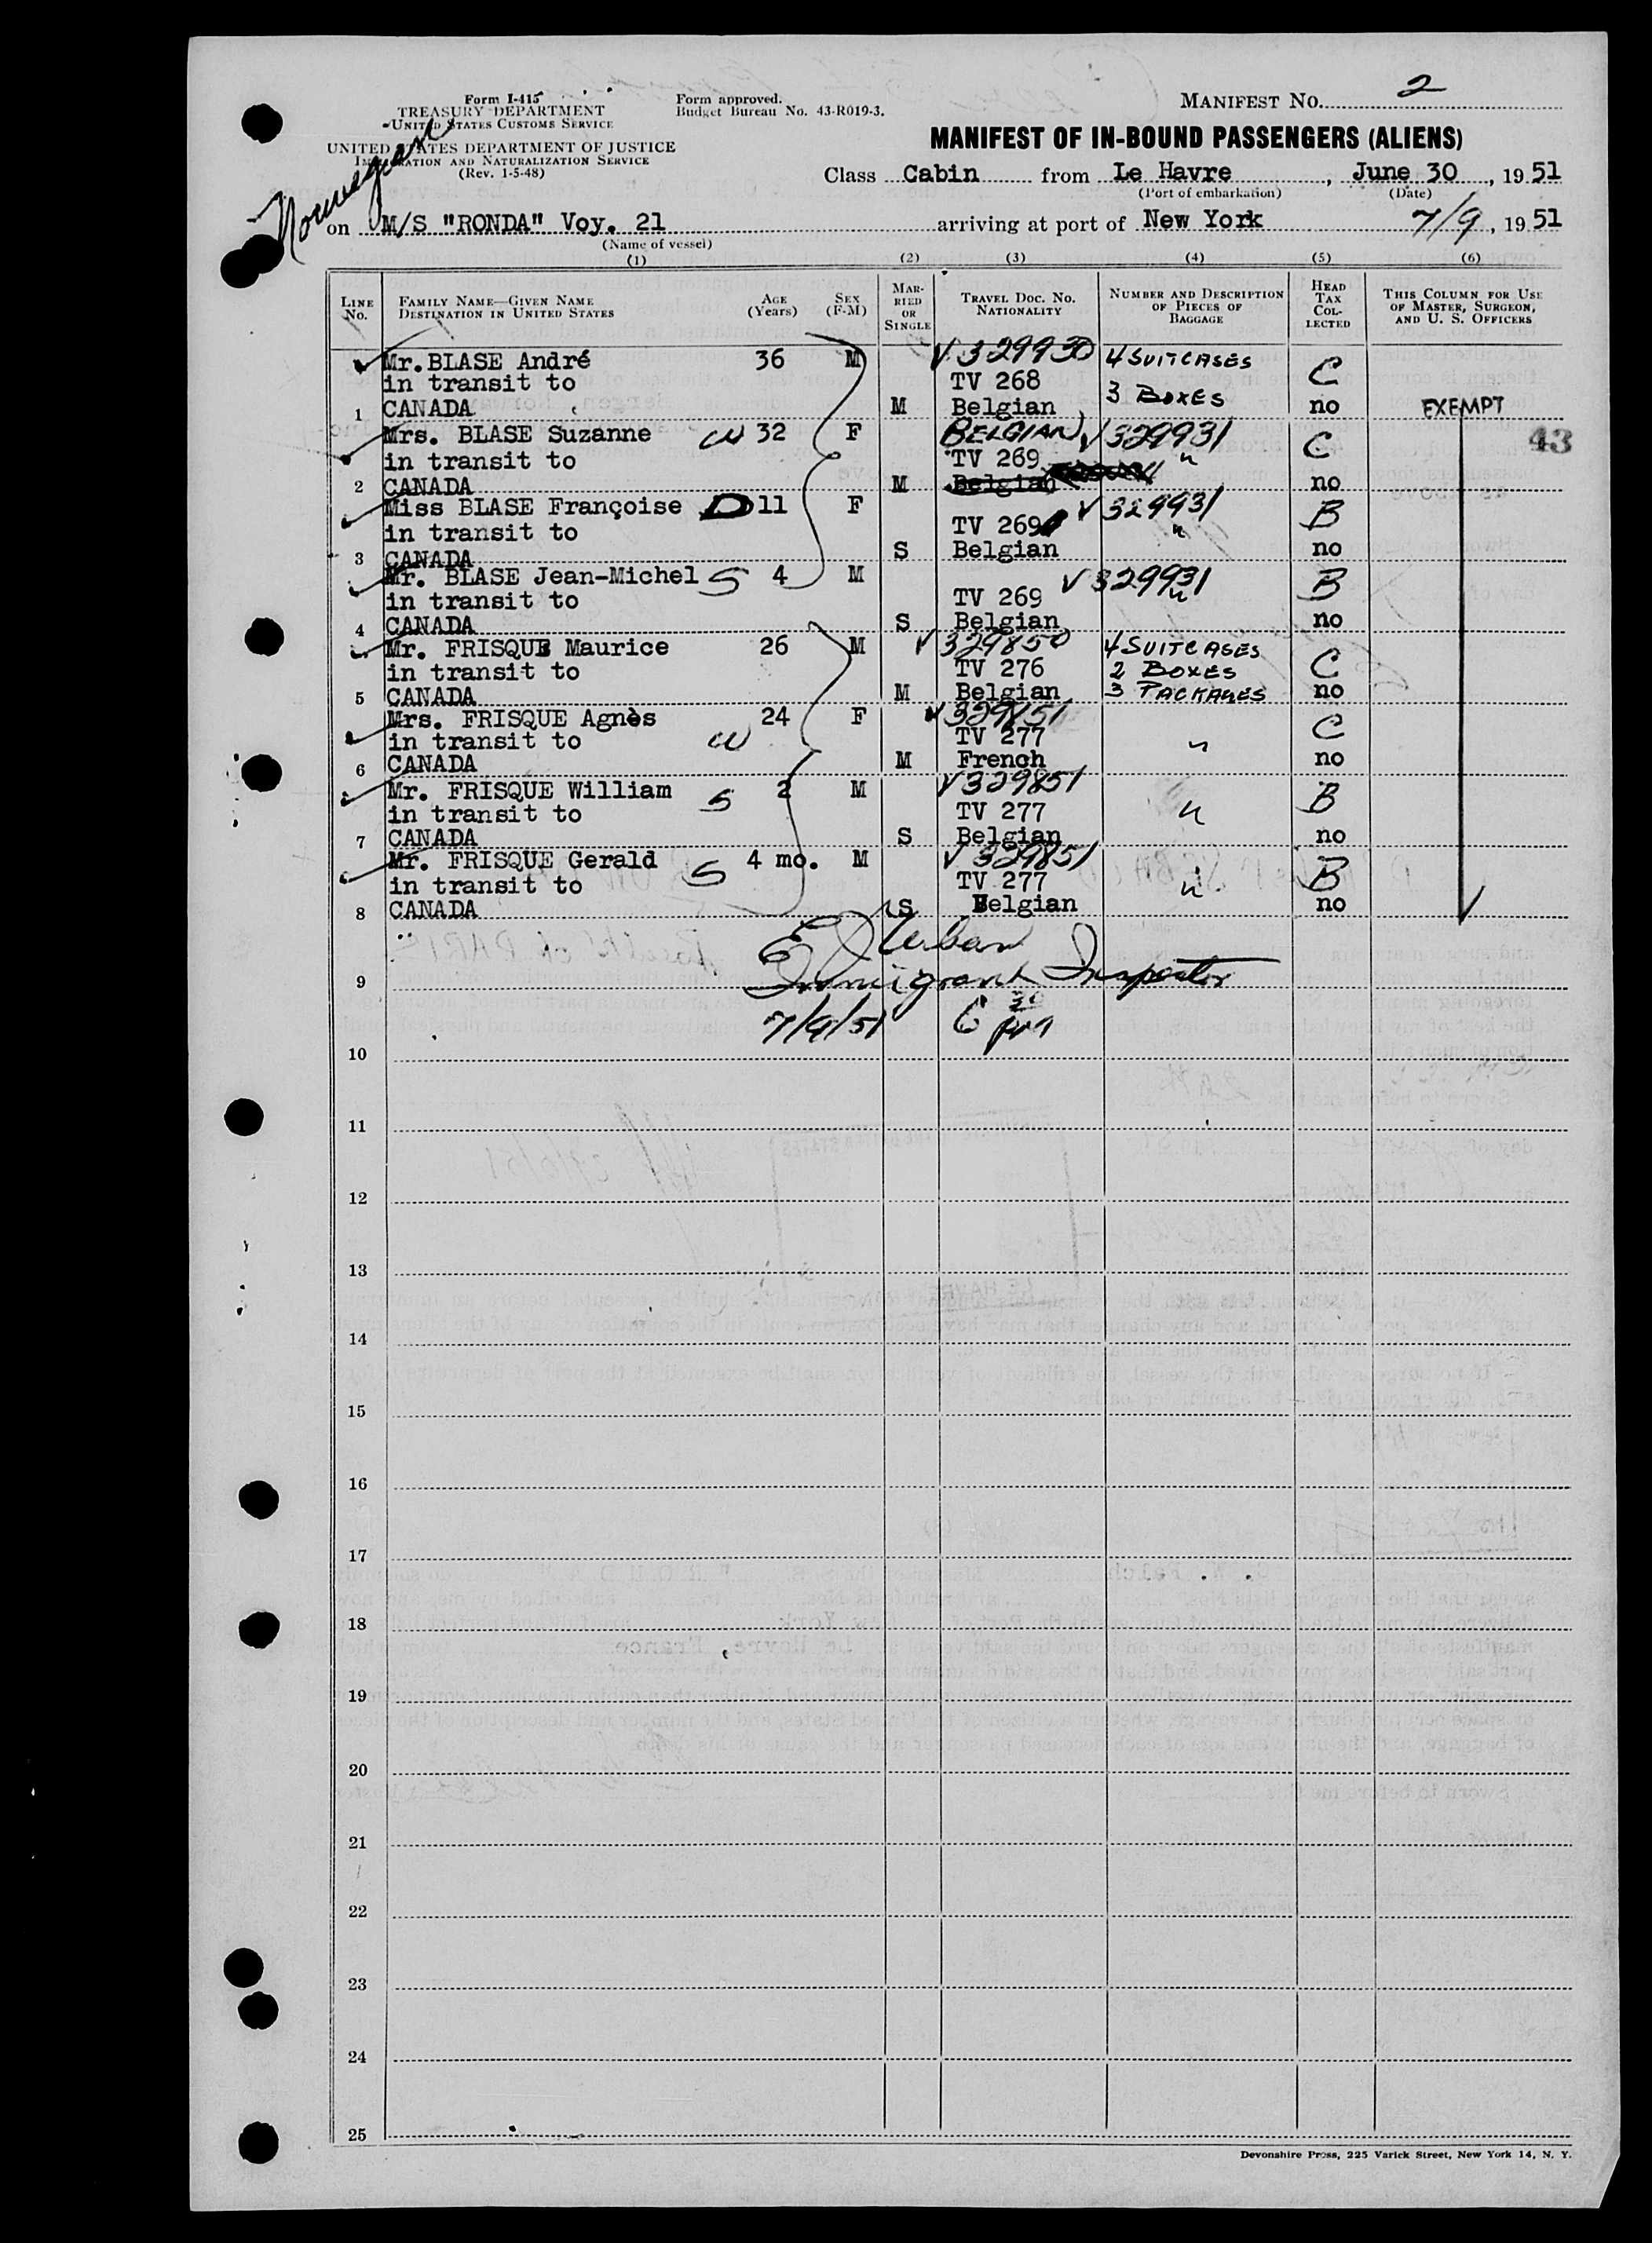 Form I-415
TREASURY DEPARTMENT
UNITED STATES CUSTOMS SERVICE
UNITED STATES DEPARTMENT OF JUSTICE
IMMIGRATION AND NATURALIZATION SERVICE
(Rev. 1-5-48)
Form approved.
Budget Bureau No. 43-R019-3.
MANIFEST NO. 2
MANIFEST OF IN-BOUND PASSENGERS (ALIENS)
Class Cabin from Le Havre, June 30, 19 51
(Port of embarkation) (Date)
Norwegian
on M/S "RONDA" Voy. 21 arriving at port of New York 7/9, 19 51
(Name of vessel)
(1) (2) (3) (4) (5) (6)
LINE NO. FAMILY NAME—GIVEN NAME DESTINATION IN UNITED STATES AGE (YEARS) SEX (F-M) MARRIED OR SINGLE TRAVEL DOC. NO. NATIONALITY NUMBER AND DESCRIPTION OF PIECES OF BAGGAGE HEAD TAX COLLECTED THIS COLUMN FOR USE OF MASTER, SURGEON, AND U. S. OFFICERS
Mr. BLASE André 36 M V 329930 4 SUITCASES
in transit to TV 268 3 BOXES C
1 CANADA M Belgian no EXEMPT
Mrs. BLASE Suzanne W 32 F BELGIAN V 329931 43
in transit to TV 269 " C
2 CANADA M Belgian no
Miss BLASE Françoise D 11 F V 329931 B
in transit to TV 269 "
3 CANADA S Belgian no
Mr. BLASE Jean-Michel S 4 M V 329931 B
in transit to TV 269 "
4 CANADA S Belgian no
Mr. FRISQUE Maurice 26 M V 329850 4 SUITCASES
in transit to TV 276 2 BOXES C
5 CANADA M Belgian 3 PACKAGES no
Mrs. FRISQUE Agnès 24 F V 329851 C
in transit to W TV 277 "
6 CANADA M French no
Mr. FRISQUE William S 2 M V 329851 B
in transit to TV 277 "
7 CANADA S Belgian no
Mr. FRISQUE Gerald S 4 mo. M V 329851 B
in transit to TV 277 "
8 CANADA S Belgian no
E J Urban
9 Immigrant Inspector
7/9/51 6 30 pm
10
11
12
13
14
15
16
17
18
19
20
21
22
23
24
25
Devonshire Press, 225 Varick Street, New York 14, N. Y.